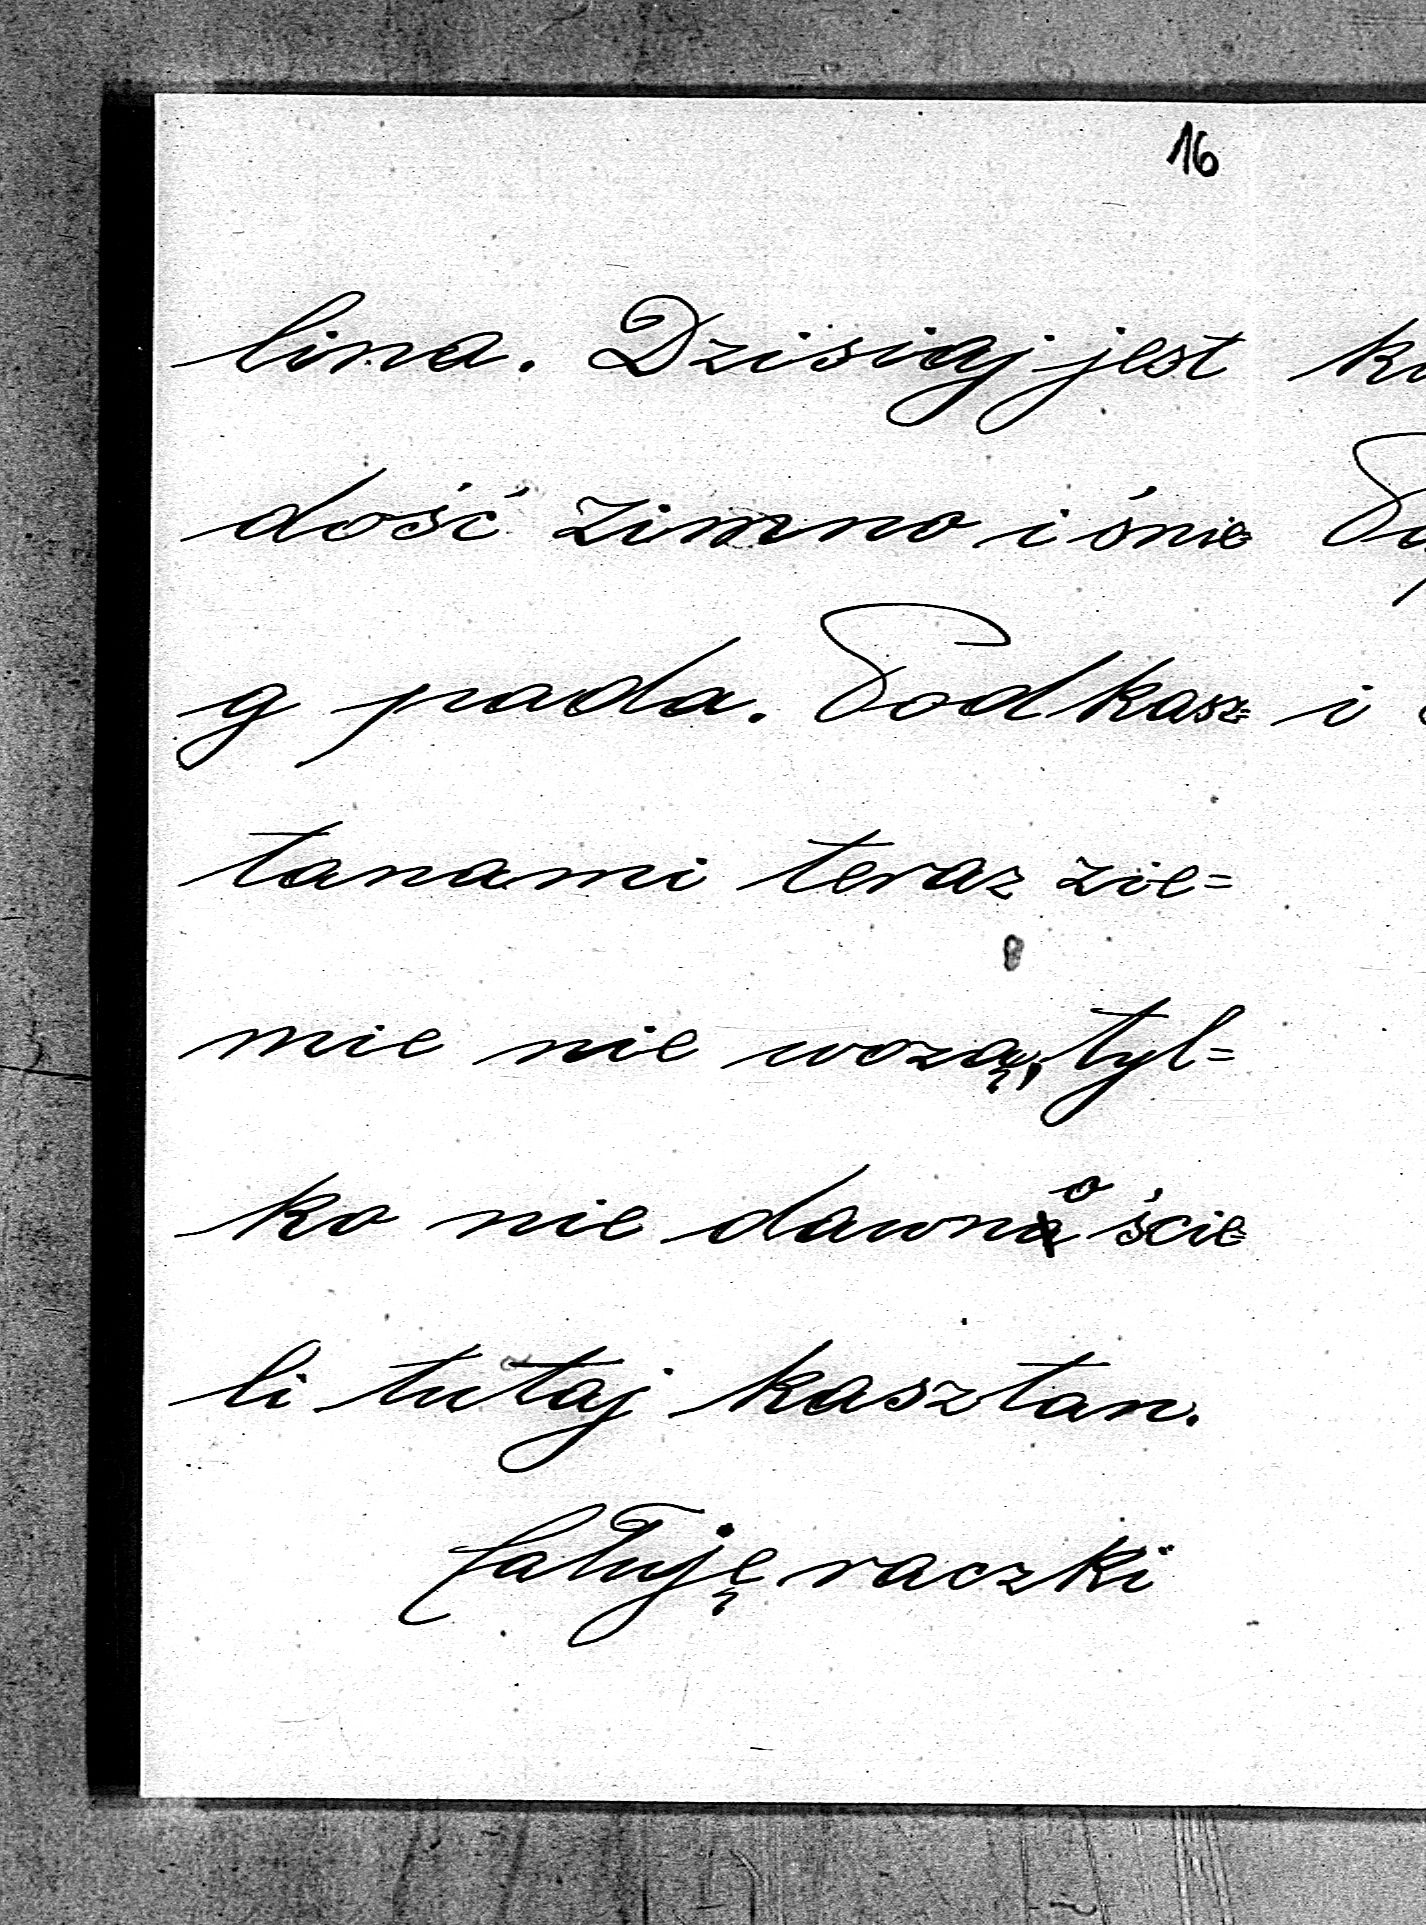 16
lina. Dzisiaj jest
dość zimno i śnie=
g pada. Pod kasz=
tanami teraz zie=
mie nie wozą, tyl=
ko nie dawno ście=
li tutaj kasztan.
Całuję raczki